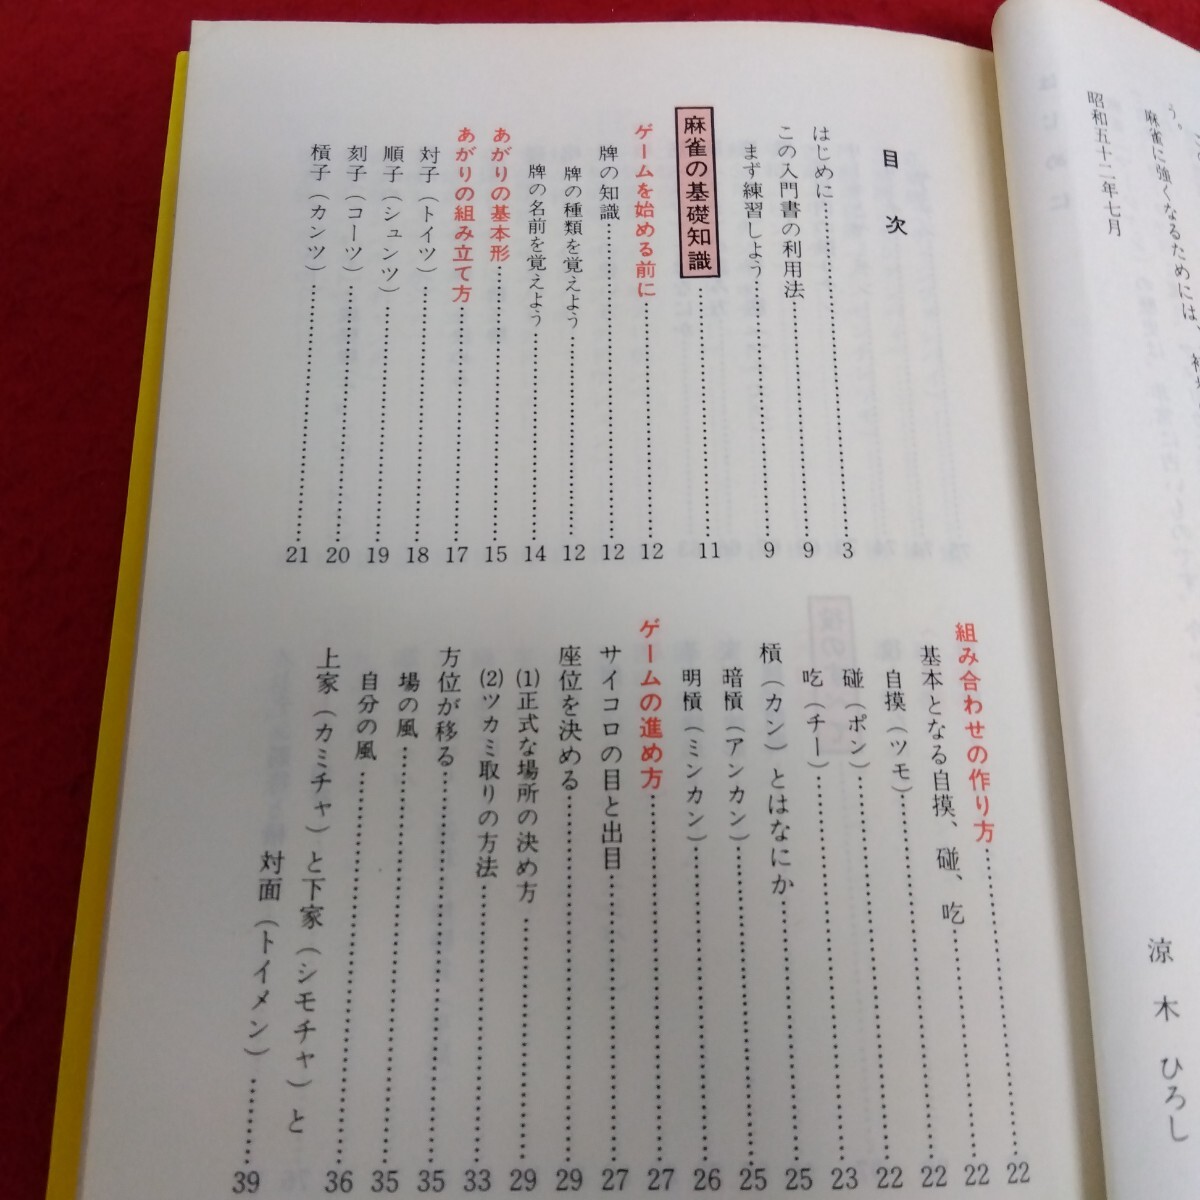 う。
麻雀に強くなるためには、
昭和五十二年七月
涼木ひろし
目次
はじめに……3
この入門書の利用法……9
まず練習しよう……9
麻雀の基礎知識……11
ゲームを始める前に……12
牌の知識……12
牌の種類を覚えよう……12
牌の名前を覚えよう……14
あがりの基本形……15
あがりの組み立て方……17
対子(トイツ)……18
順子(シュンツ)……19
刻子(コーツ)……20
槓子(カンツ)……21
組み合わせの作り方……22
基本となる自摸、碰、吃……22
自摸(ツモ)……22
碰(ポン)……22
吃(チー)……23
槓(カン)とはなにか……25
暗槓(アンカン)……25
明槓(ミンカン)……26
ゲームの進め方……27
サイコロの目と出目……27
座位を決める……29
(1)正式な場所の決め方……29
(2)ツカミ取りの方法……33
方位が移る……35
場の風……35
自分の風……36
上家(カミチャ)と下家(シモチャ)と
対面(トイメン)……39